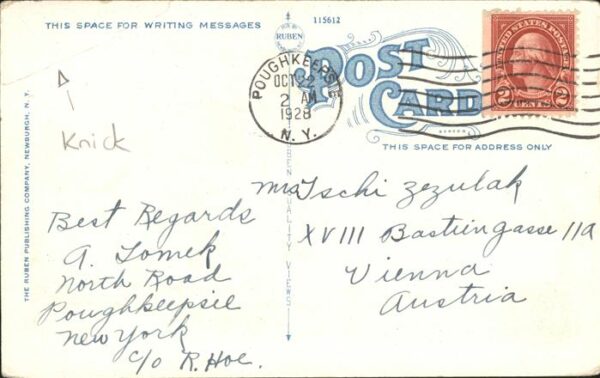 THIS SPACE FOR WRITING MESSAGES
115612
RUBEN
POST
CARD
THIS SPACE FOR ADDRESS ONLY
POUGHKEEPSIE
OCT 2
2 AM
1928
N.Y.
UNITED STATES POSTAGE
2 CENTS 2
Knick
THE RUBEN PUBLISHING COMPANY, NEWBURGH, N. Y.
QUALITY VIEWS
Best Regards
A. Tomek
North Road
Poughkeepsie
New York
c/o R. Hoe.
Zezulak
XVIII Bastiengasse 11a
Vienna
Austria